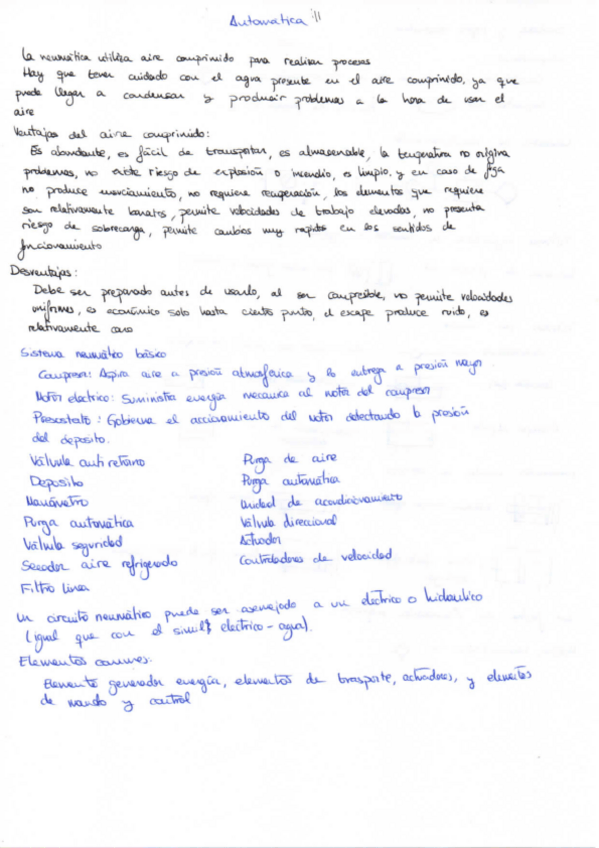 Automática
La neumática utiliza aire comprimido para realizar procesos
Hay que tener cuidado con el agua presente en el aire comprimido, ya que
puede llegar a condensar y producir problemas a la hora de usar el
aire
Ventajas del aire comprimido:
Es abundante, es fácil de transportar, es almacenable, la temperatura no origina
problemas, no existe riesgo de explosión o incendio, es limpio, y en caso de fuga
no produce, no requiere recuperación, los elementos que requiere
son relativamente baratos, permite velocidades de trabajo elevadas, no presenta
riesgo de sobrecarga, permite cambios muy rapidos en los sentidos de
funcionamiento
Desventajas:
Debe ser preparado antes de usarlo, al ser compresible, no permite velocidades
uniformes, es económico solo hasta cierto punto, el escape produce ruido, es
relativamente caro
Sistema neumático básico
Compresor: Aspira aire a presión atmosférica y lo entrega a presión mayor
Motor electrico: Suministra energía mecanica al motor del compresor
Presostato: Gobierna el accionamiento del motor detectando la presión
del deposito.
Válvula anti retorno
Deposito
Manómetro
Purga automática
Válvula seguridad
Secador aire refrigerado
Filtro linea
Purga de aire
Purga automática
Unidad de acondicionamiento
Válvula direccional
Actuador
Controladores de velocidad
Un circuito neumático puede ser asemejado a un eléctrico o hidraulico
(igual que con el simil electrico - agua).
Elementos comunes:
Elemento generador energía, elementos de trasporte, actuadores, y elementos
de mando y control